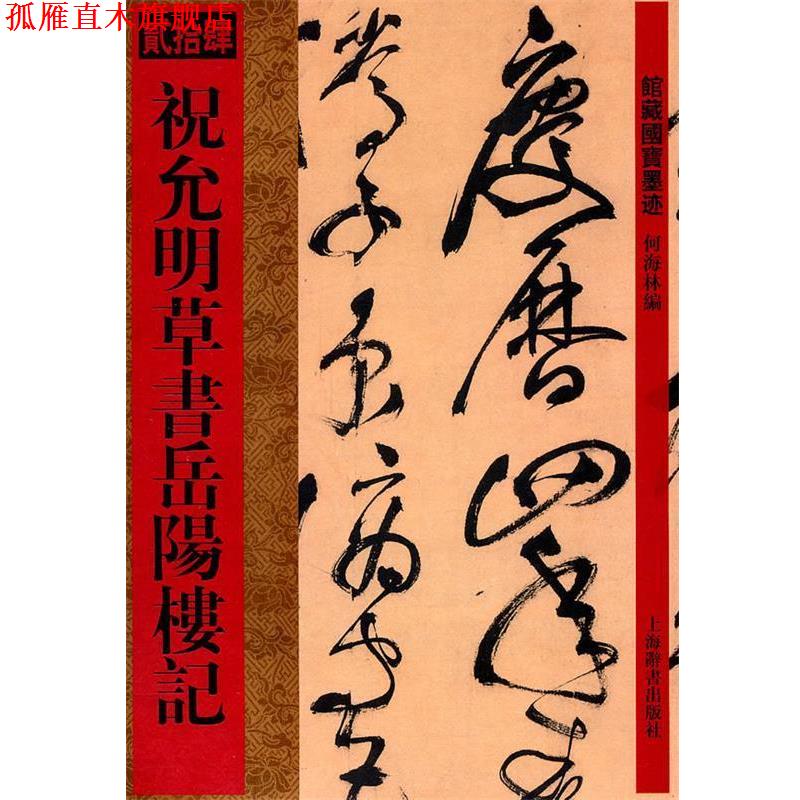 孤雁直木旗舰店
貳拾肆
祝允明草書岳陽樓記
館藏國寶墨迹
何海林編
上海辭書出版社
慶曆四年
滕子京謫守